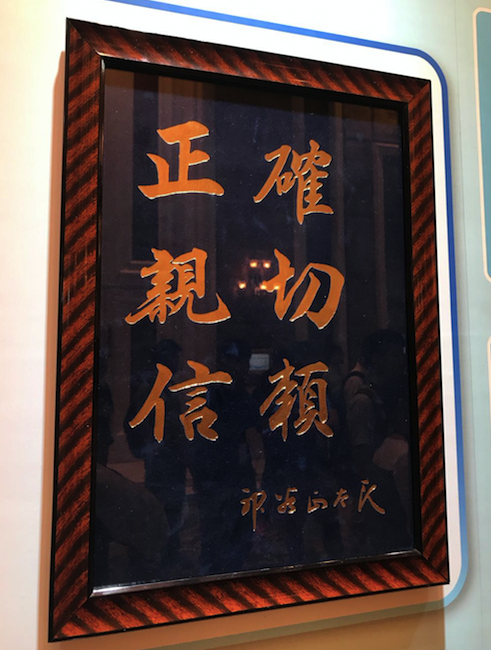 正確
親切
信頼